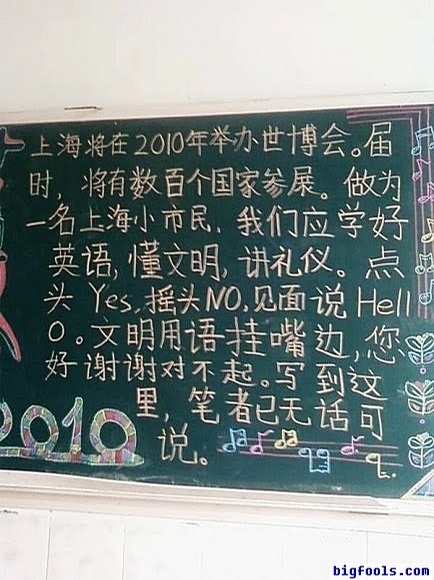 上海将在2010年举办世博会。届
时，将有数百个国家参展。做为
一名上海小市民，我们应学好
英语，懂文明，讲礼仪。点
头Yes，摇头NO，见面说Hell
O。文明用语挂嘴边，您
好谢谢对不起。写到这
里，笔者已无话可
说。
2010
bigfools.com